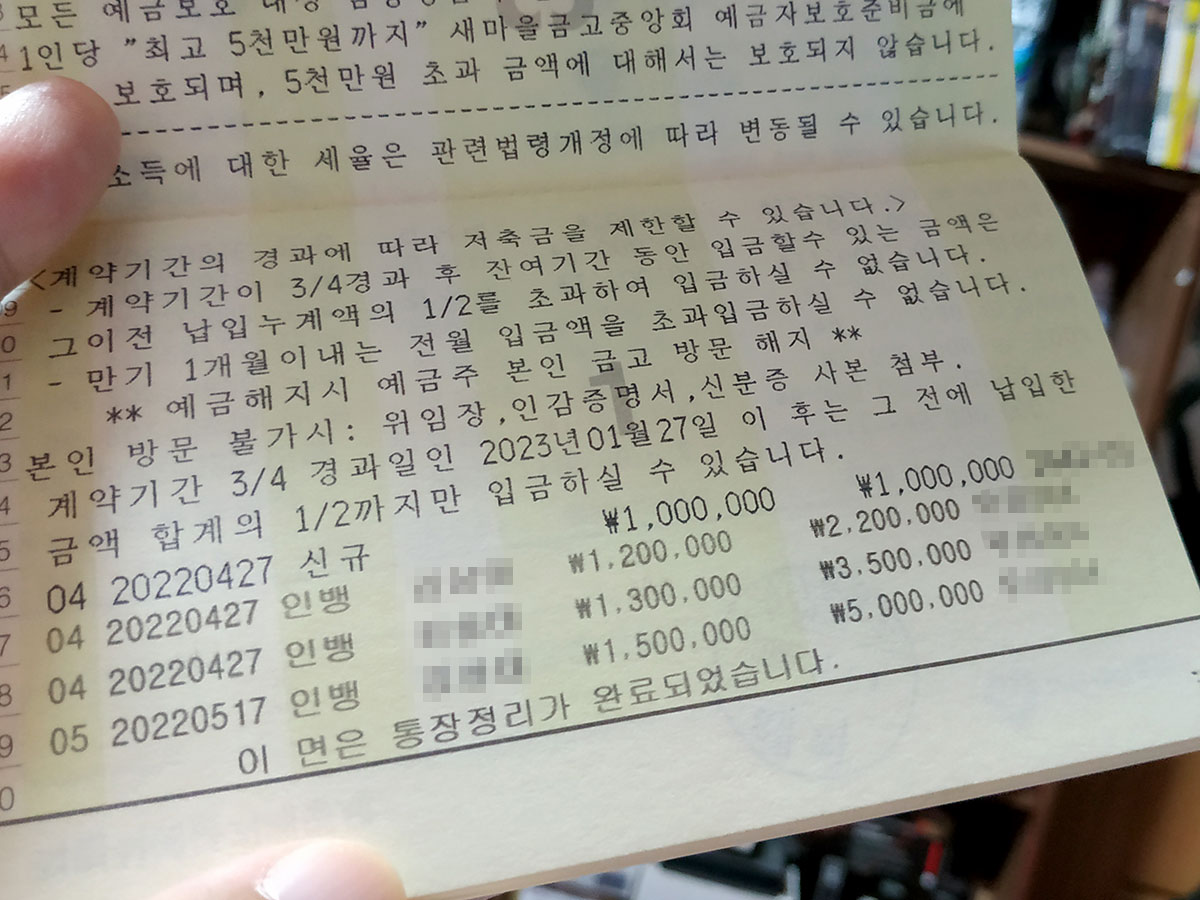 모든 예금보호 대상
1인당 "최고 5천만원까지" 새마을금고중앙회 예금자보호준비금에
보호되며, 5천만원 초과 금액에 대해서는 보호되지 않습니다.
소득에 대한 세율은 관련법령개정에 따라 변동될 수 있습니다.
<계약기간의 경과에 따라 저축금을 제한할 수 있습니다.>
9 - 계약기간이 3/4경과 후 잔여기간 동안 입금할수 있는 금액은
0 그이전 납입누계액의 1/2를 초과하여 입금하실 수 없습니다.
1 - 만기 1개월이내는 전월 입금액을 초과입금하실 수 없습니다.
2 ** 예금해지시 예금주 본인 금고 방문 해지 **
3 본인 방문 불가시: 위임장,인감증명서,신분증 사본 첨부.
4 계약기간 3/4 경과일인 2023년01월27일 이 후는 그 전에 납입한
5 금액 합계의 1/2까지만 입금하실 수 있습니다.
6 04 20220427 신규 ₩1,000,000 ₩1,000,000
7 04 20220427 인뱅 ₩1,200,000 ₩2,200,000
8 04 20220427 인뱅 ₩1,300,000 ₩3,500,000
9 05 20220517 인뱅 ₩1,500,000 ₩5,000,000
0 이 면은 통장정리가 완료되었습니다.